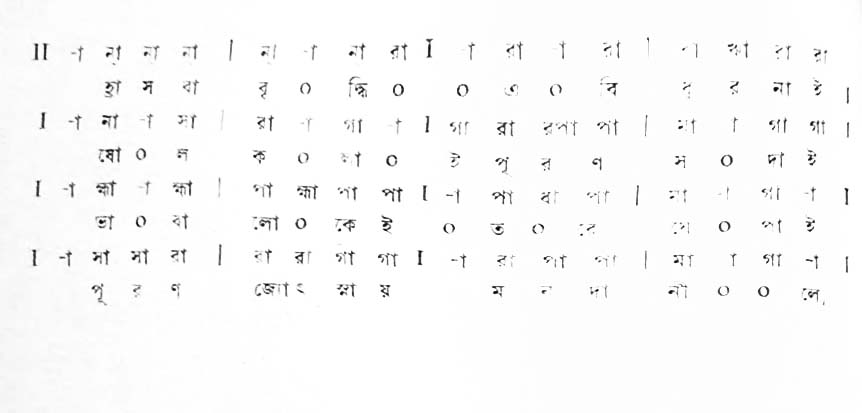 II -া ন্‌া ন্‌া ন্‌া | ন্‌া -া ন্‌া রা I -া রা -া রা | -া হ্মা রা রা
হ্রা স বা বৃ ০ দ্ধি ০ ০ এ ০ বি ব র না ই |
I -া না -া সা | রা -া গা -া I গা রা রপা পা | মা -া গা গা |
ষো ০ ল ক ০ লা ০ ই পূ র ণ স ০ দা ই
I -া হ্মা -া হ্মা | পা হ্মা পা পা I -া পা ধা পা | মা -া গা -া I
ভা ০ বা লো ০ কে ই ০ ত ০ বে ০ পা ই
I -া সা সা রা | রা রা গা গা I -া রা পা পা | মা -া গা -া |
পূ র ণ জ্যোৎ স্না য় ম ন দা নী ০ ০ লে,